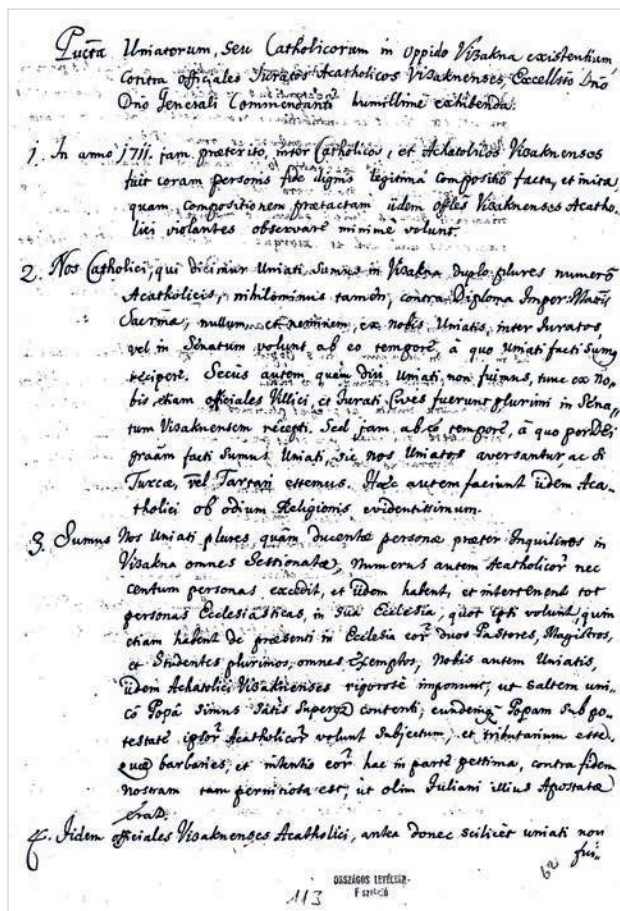 Puncta Uniatorum, seu Catholicorum in Oppido Vizakna existentium,
Contra officiales Juratos Acatholicos Vizaknenses, Excellmo Dno
Dno Generali Commendanti humillime exhibenda.
1. In anno 1711. jam praeterito, inter Catholicos, et Achatolicos Vizaknenses
fuit coram personis fide dignis legitima compositio facta, et inita,
quam compositionem praetactam iidem offles Vizaknenses Acatho-
lici violantes observare minime volunt.
2. Nos Catholici, qui dicimur Uniati, sumus in Vizakna duplo plures numero
Acatholicis, nihilominus tamen, contra Diploma Imper: Mattis
Sacrmae, nullum et neminem, ex nobis Uniatis, inter Juratos,
vel in Senatum volunt ab eo tempore, à quo Uniati facti sumus
recipere. Secus autem quam diu Uniati non fuimus, tunc ex no-
bis etiam officiales Villici, et Jurati Cives fuerunt plurimi in Sena-
tum Vizaknensem recepti. Sed jam ab eo tempore, à quo per DEI
graam facti sumus Uniati, sic nos Uniatos aversantur, ac si
Turcae, vel Tartari essemus. Haec autem faciunt iidem Aca-
tholici ob odium Religionis evidentissimum.
3. Sumus Nos Uniati plures quàm ducentae personae praeter Inquilinos in
Vizakna omnes Sessionatae, Numerus autem Acatholicor nec
centum personas excedit, et iidem habent, et intertenent tot
personas Ecclesiasticas, in sua Ecclesia, quot ipsi volunt, quin
etiam habent de praesenti in Ecclesia eor duos Pastores, Magistros,
et Studentes plurimos, omnes Exemptos, Nobis autem Uniatis,
iidem Achatolici Vizaknenses rigorose imponunt, ut saltem uni-
co Popa simus satis superq contenti, eundemq Popam sub po-
testate ipsor Acatholicor volunt subjectum, et tributarium esse.
Quae barbaries, et intentio eor hac in parte pessima, contra fidem
nostram tam pernitiosa est, ut olim Juliani illius Apostatae
erat.
4. Iidem officiales Vizaknenses Acatholici, antea donec scilicet uniati non
fui-
62
113
ORSZÁGOS LEVÉLTÁR
F szekció